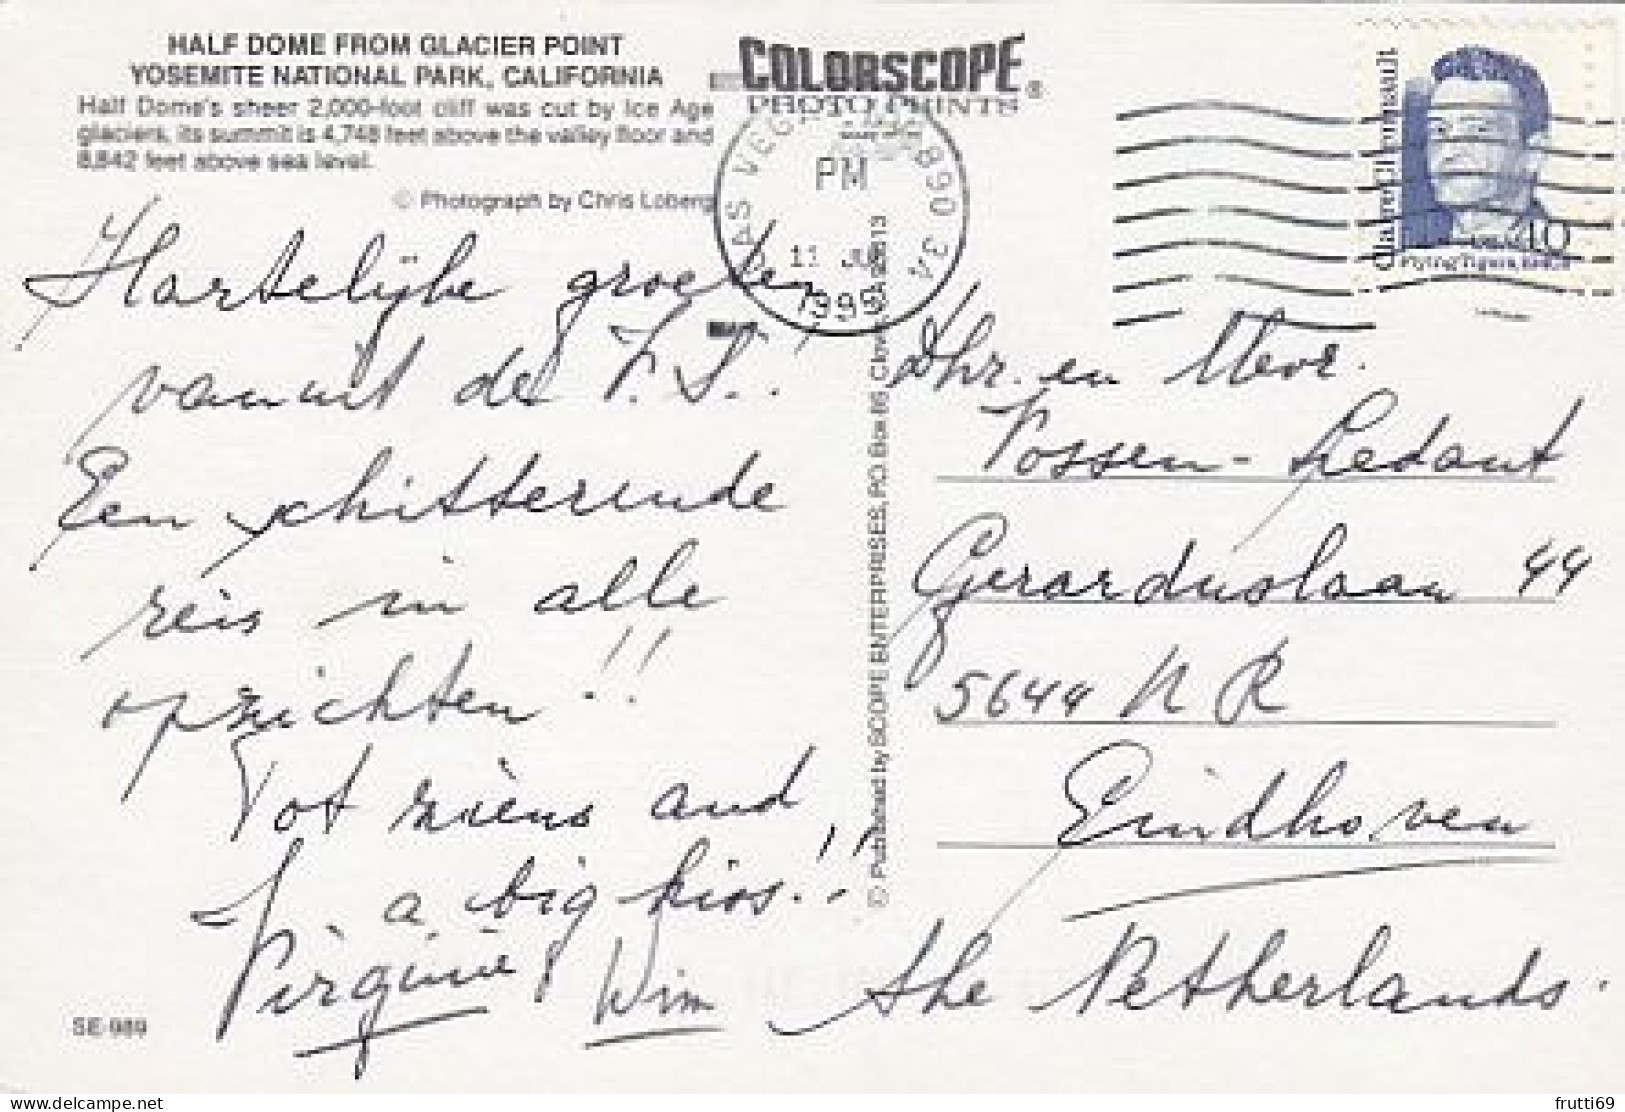 HALF DOME FROM GLACIER POINT
YOSEMITE NATIONAL PARK, CALIFORNIA
Half Dome's sheer 2,000-foot cliff was cut by Ice Age
glaciers, its summit is 4,748 feet above the valley floor and
8,842 feet above sea level.
© Photograph by Chris Loberg
COLORSCOPE®
PHOTO PRINTS
LAS VEGAS
890 3A
PM
11 JU
1995
Claire Chennault
40
Flying Tigers, 1940s
Hartelijke groeten
vanuit de V.S.!
Een schitterende
reis in alle
opzichten!!
Tot ziens and
a big kios!!
Virginie & Wim
SE-989
© Published by SCOPE ENTERPRISES, P.O. Box 65, Clovis, CA 93613
Dhr. en Mevr.
Vossen-Ledant
Gerarduslaan 44
5644 NR
Eindhoven
the Netherlands.
frutti69